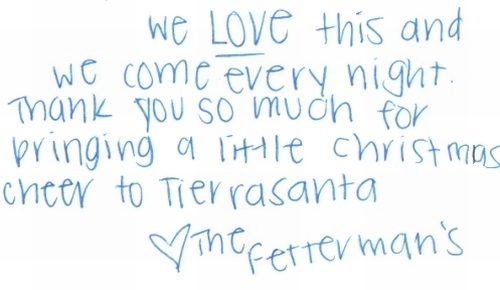 we LOVE this and
we come every night.
Thank you so much for
bringing a little christmas
cheer to Tierrasanta
♡The Fetterman's